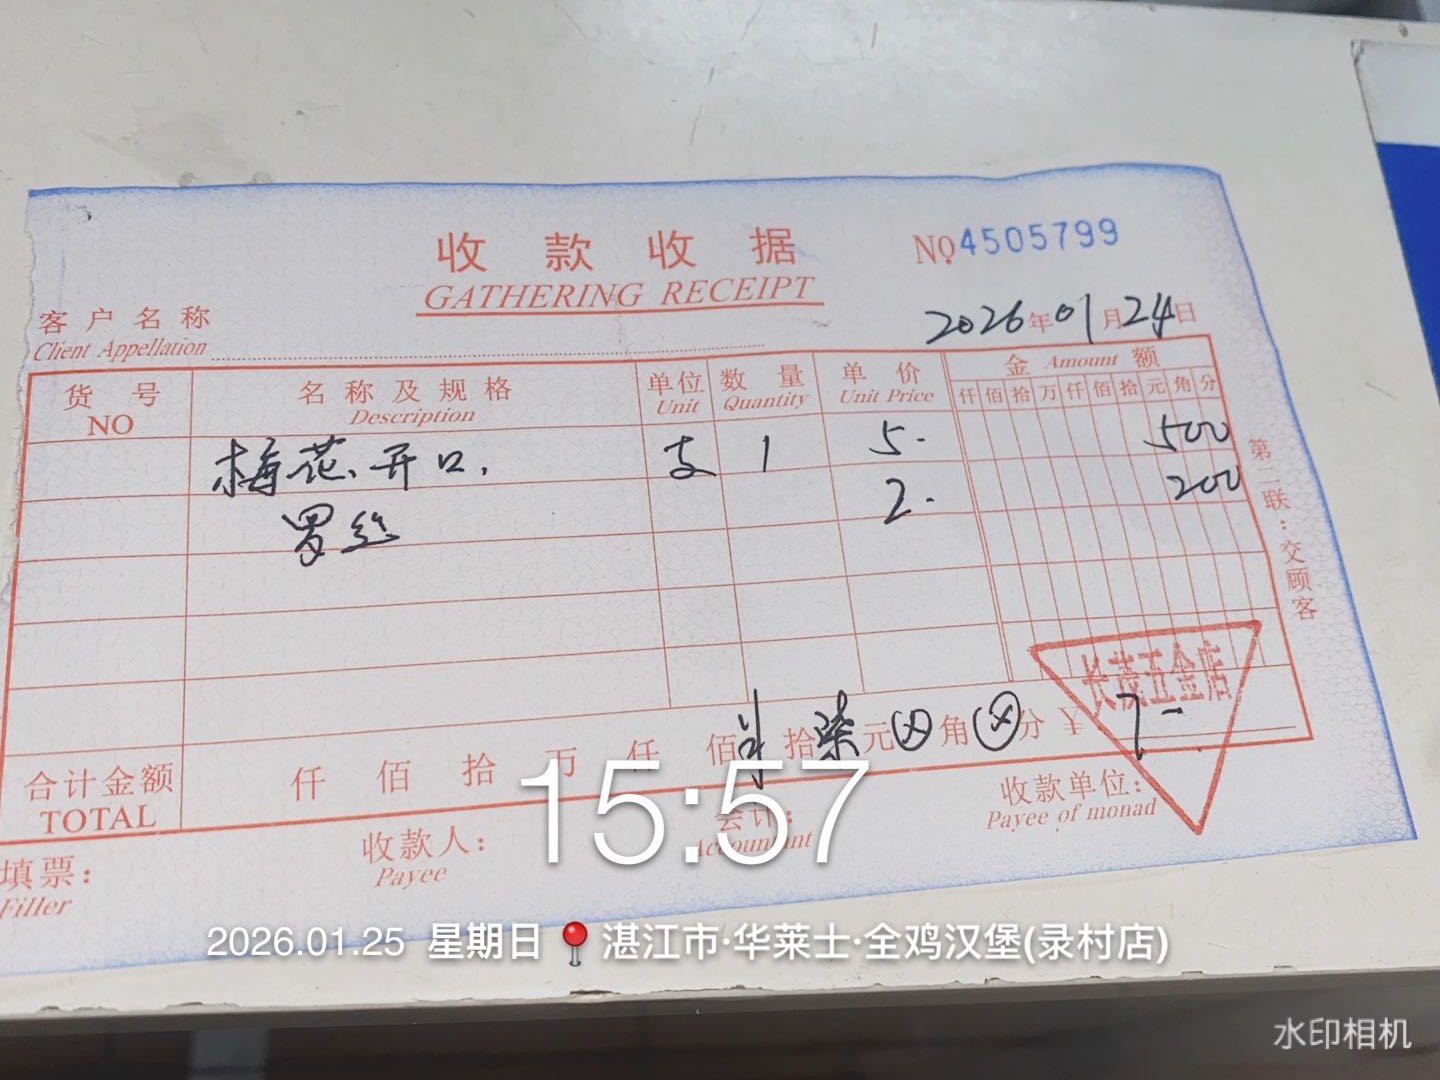 收款收据
GATHERING RECEIPT
NO 4505799
客户名称
Client Appellation
2026年01月24日
货号 名称及规格 单位 数量 单价 金 Amount 额
NO Description Unit Quantity Unit Price 仟佰拾万仟佰拾元角分
梅花、开口, 支 1 5. 500
罗丝 2. 200
第二联:交顾客
长茂五金店
合计金额 仟 佰 拾 万 仟 佰 拾 柒 元 角 分 ¥ 7-
TOTAL
填票: 收款人: 会计: 收款单位:
Filler Payee Accountant Payee of monad
15:57
2026.01.25 星期日 湛江市·华莱士·全鸡汉堡(录村店)
水印相机